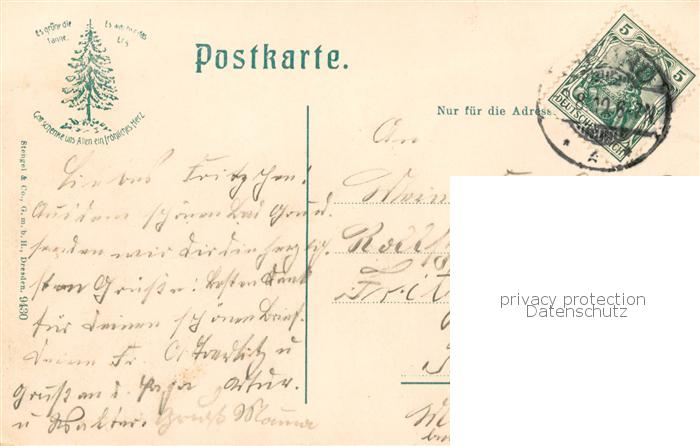 Es grüne die
Tanne,
Es wachse das
Erz
Gott schenke uns Allen ein fröhliches Herz
Postkarte.
Nur für die Adresse
5
5
DEUTSCHES REICH
Stengel & Co., G. m. b. H., Dresden. 9430
An
Liebes Fritzchen!
Aus dem schönen Bad Grund
senden wir Dir die herzlich
sten Grüße! besten Dank
für Deinen schönen Brief.
Deine Fr. u
Gruß an d. Papa Artur.
u Walter. Gruß Mama
privacy protection
Datenschutz